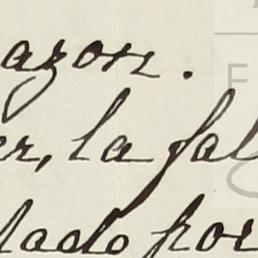 azon.
er, la fal
tado por